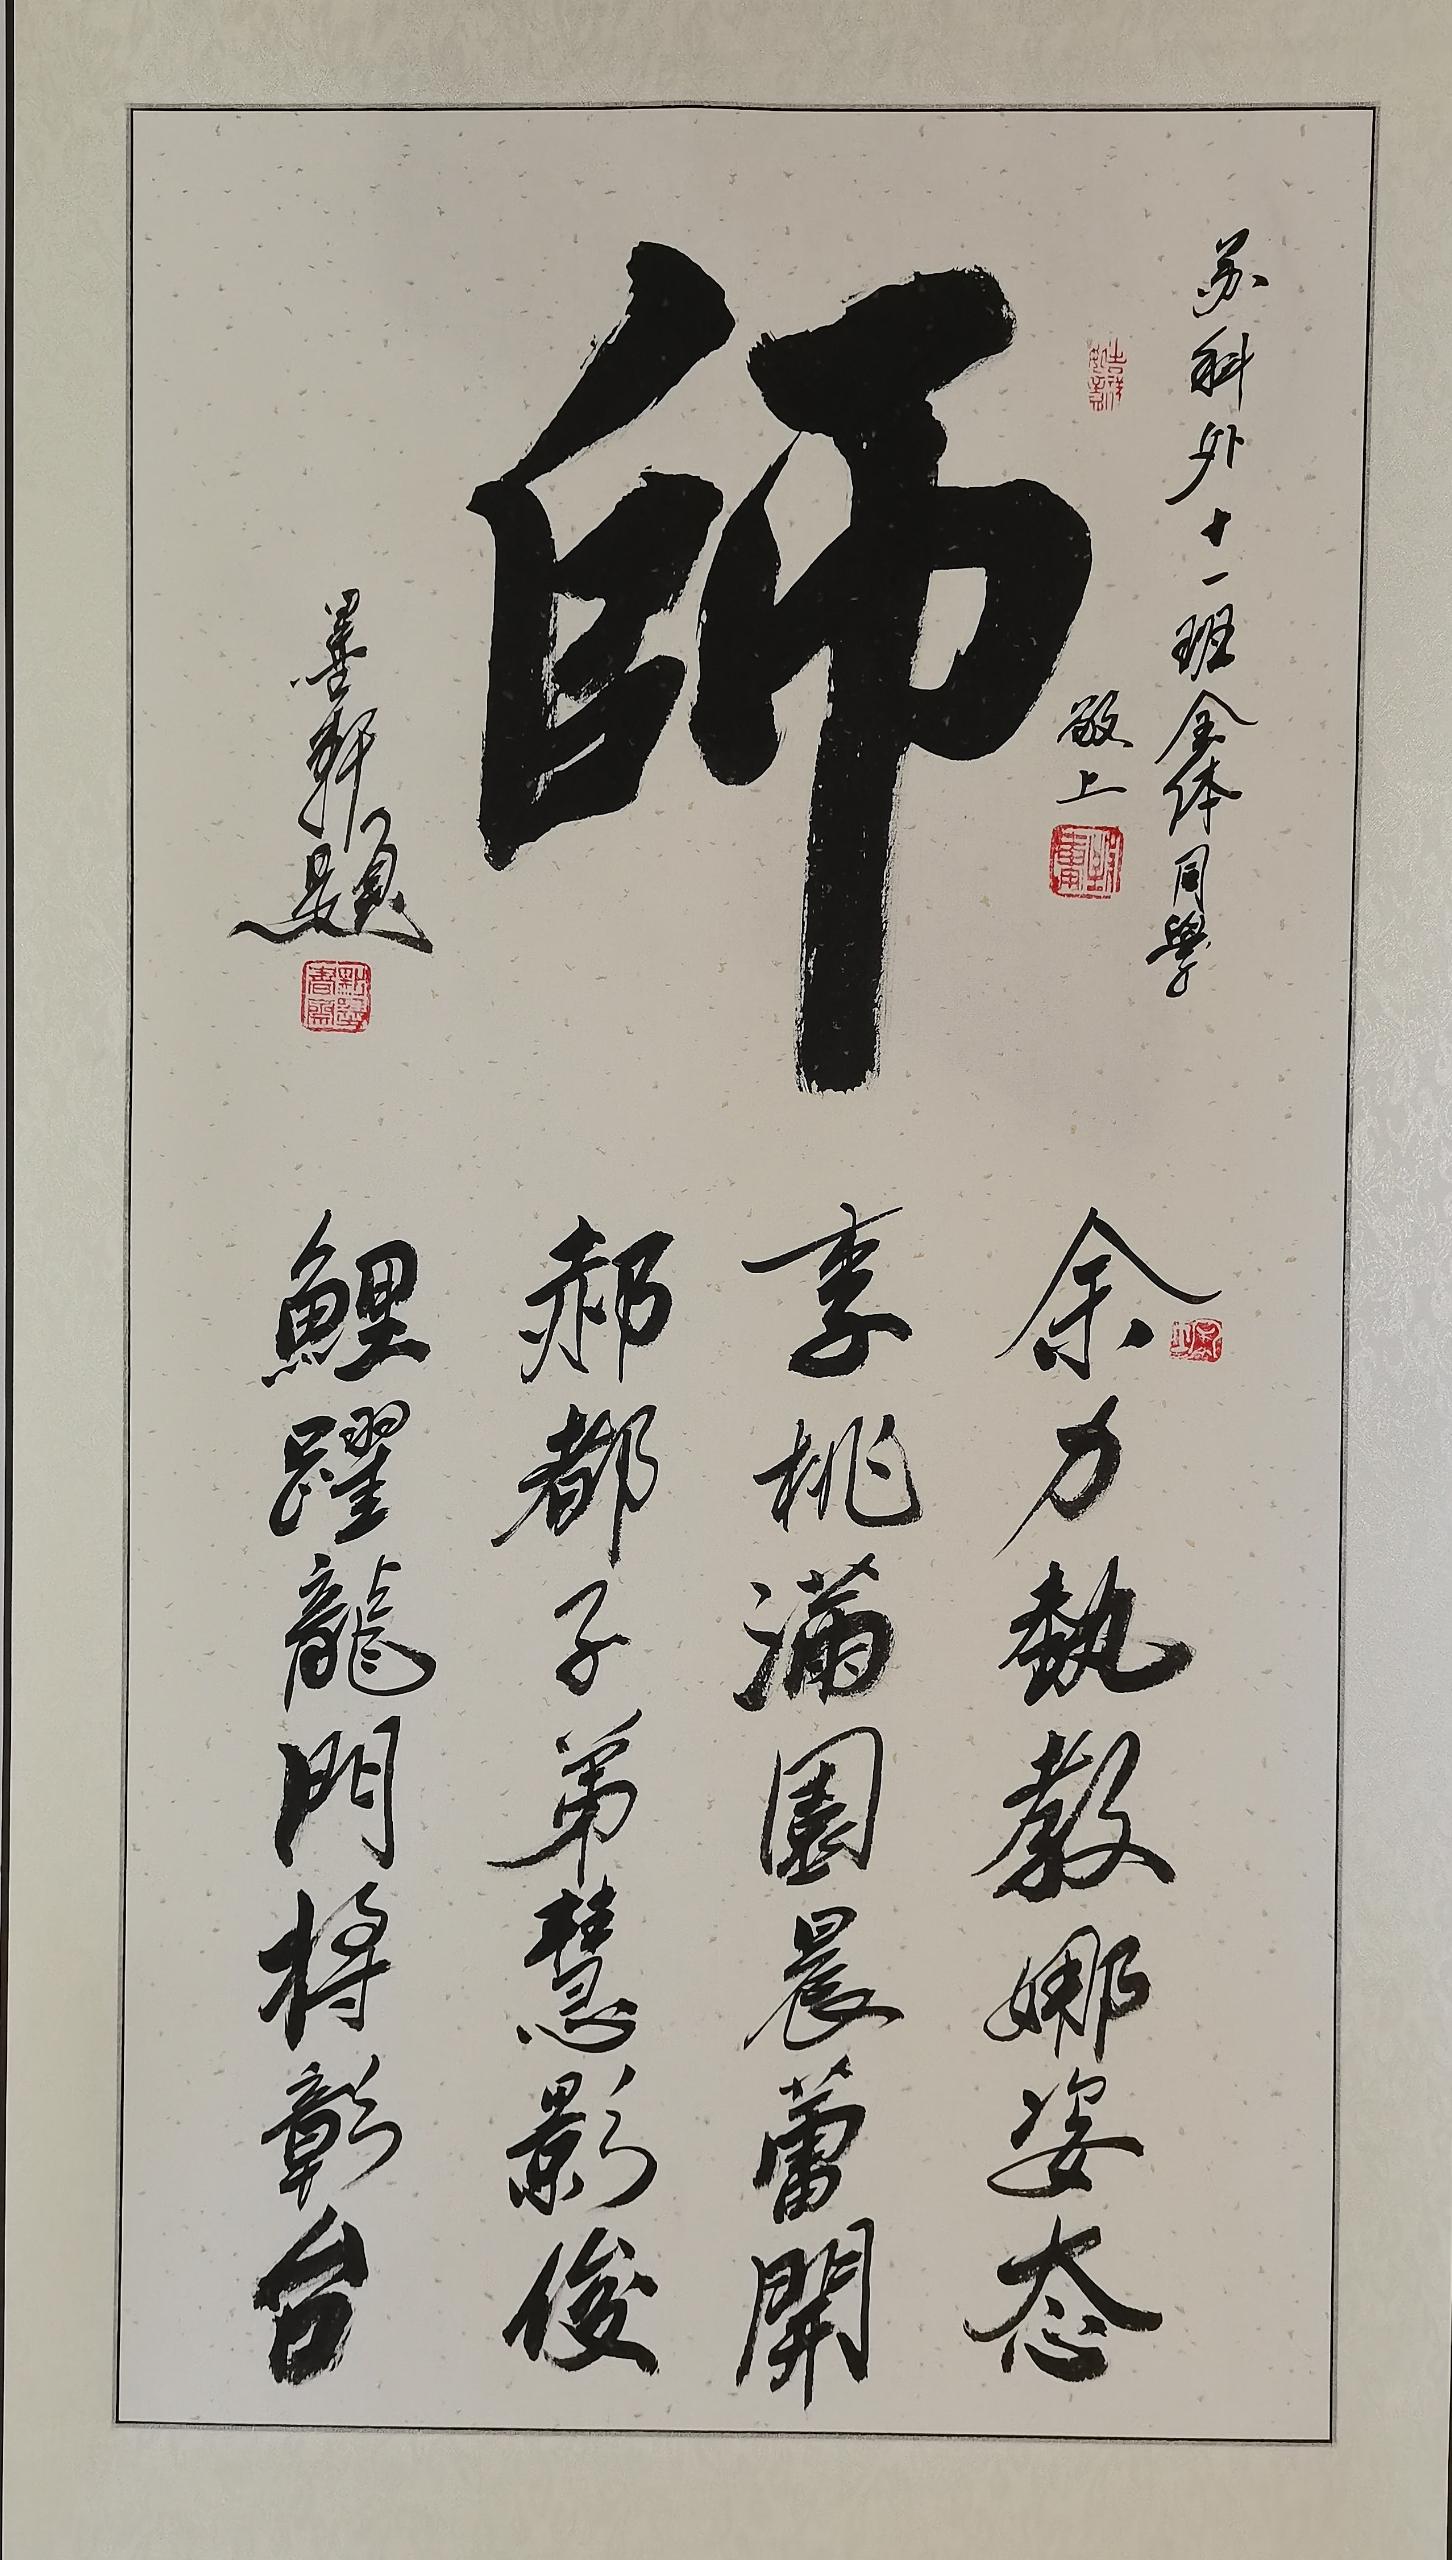 苏科外十一班全体同學
敬上
師
墨軒題
余力執教娜姿态
李桃满園晨蕾開
郝都子弟慧影俊
鯉躍龍門将彰台
吉祥如意